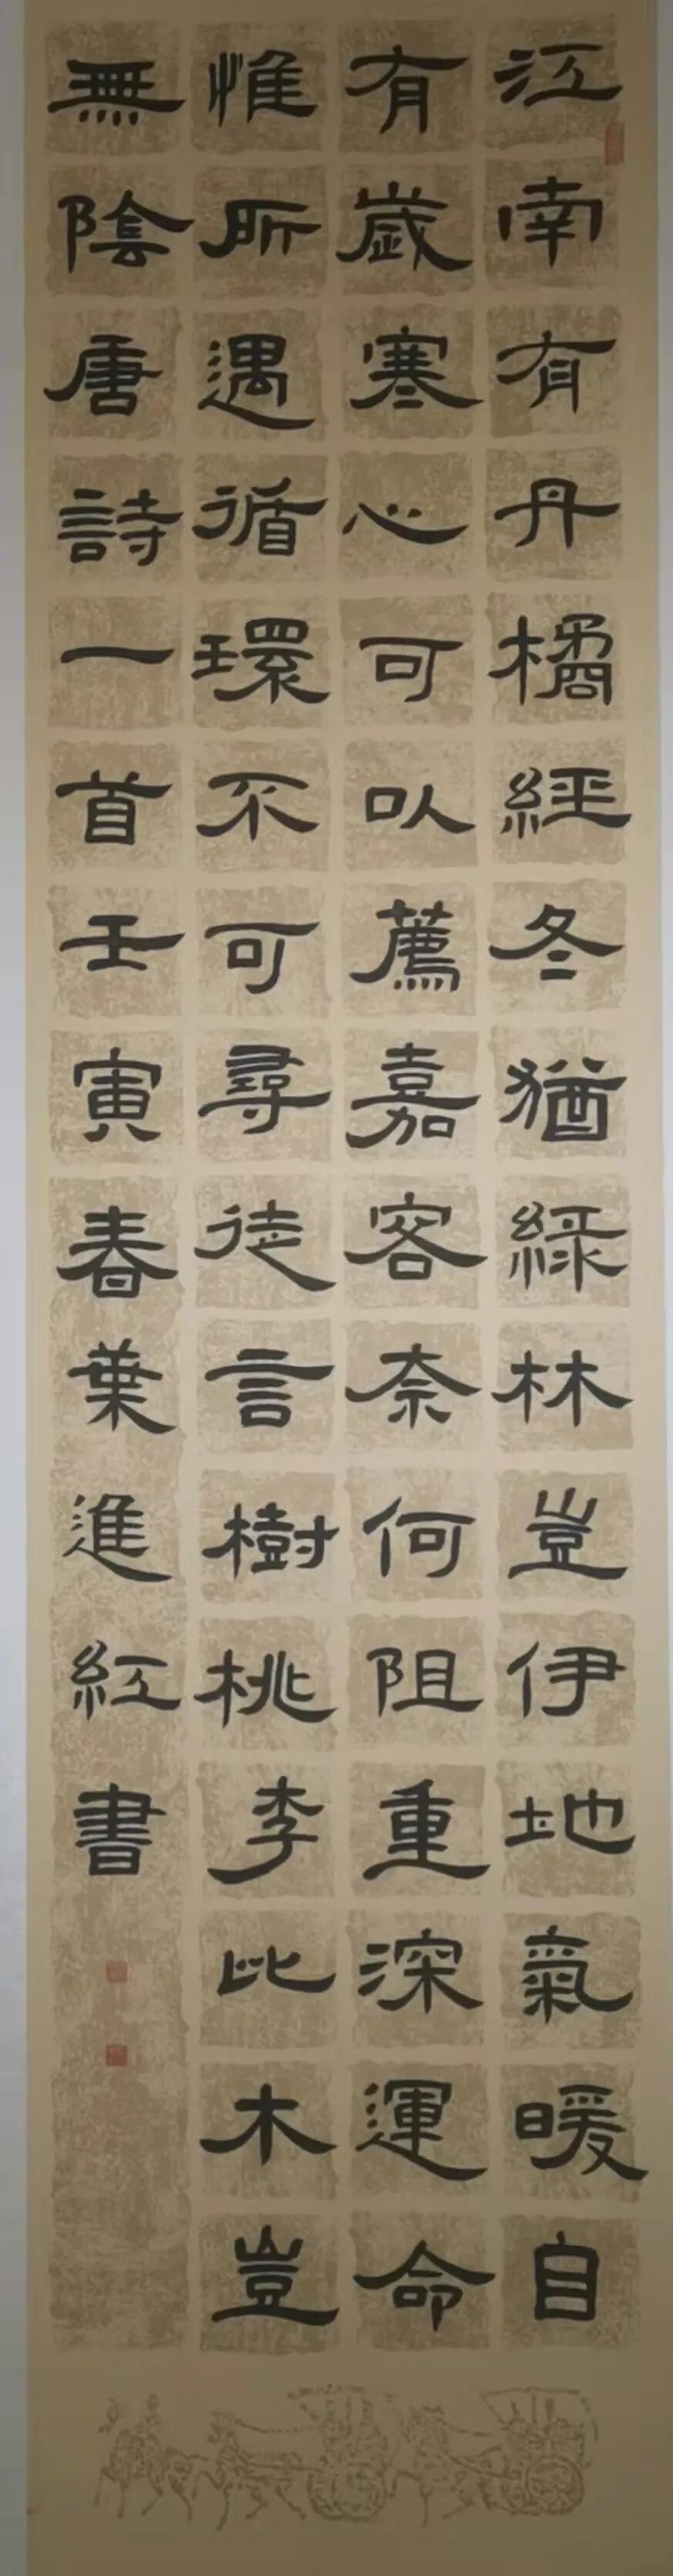 江南有丹橘經冬猶綠林豈伊地氣暖自
有歲寒心可以薦嘉客奈何阻重深運命
惟所遇循環不可尋徒言樹桃李比木豈
無陰唐詩一首壬寅春葉進紅書